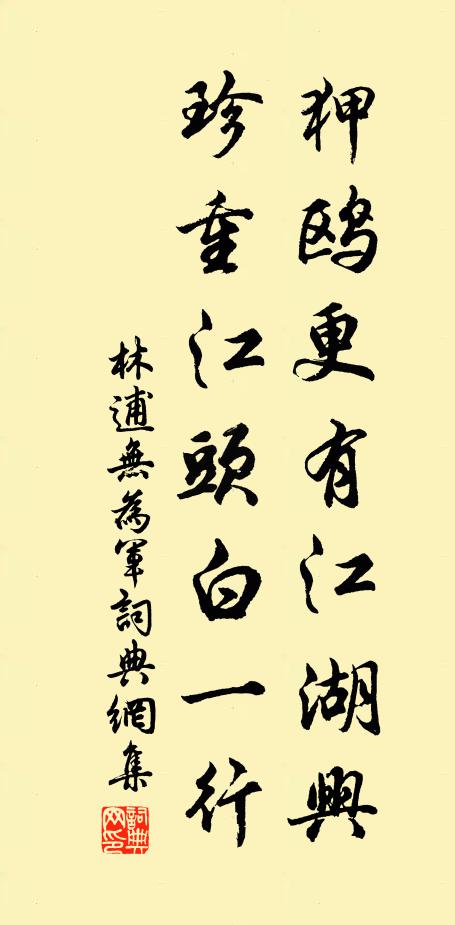 狎鷗更有江湖興
珍重江頭白一行
林逋無為軍詞典網集
詞典网印